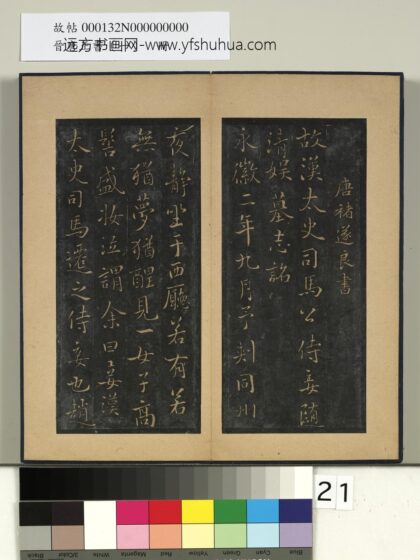 故帖 000132N000000000
远方书画网-www.yfshuhua.com
唐褚遂良書
故漢太史司馬公侍妾隨
清娛墓志銘
永徽二年九月予刺同州
夜靜坐于西廳若有若
無猶夢猶醒見一女子高
髻盛妝泣謂余曰妾漢
太史司馬遷之侍妾也趙
21
Black
3/Color
White
Magenta
Red
Yellow
Green
Cyan
Blue